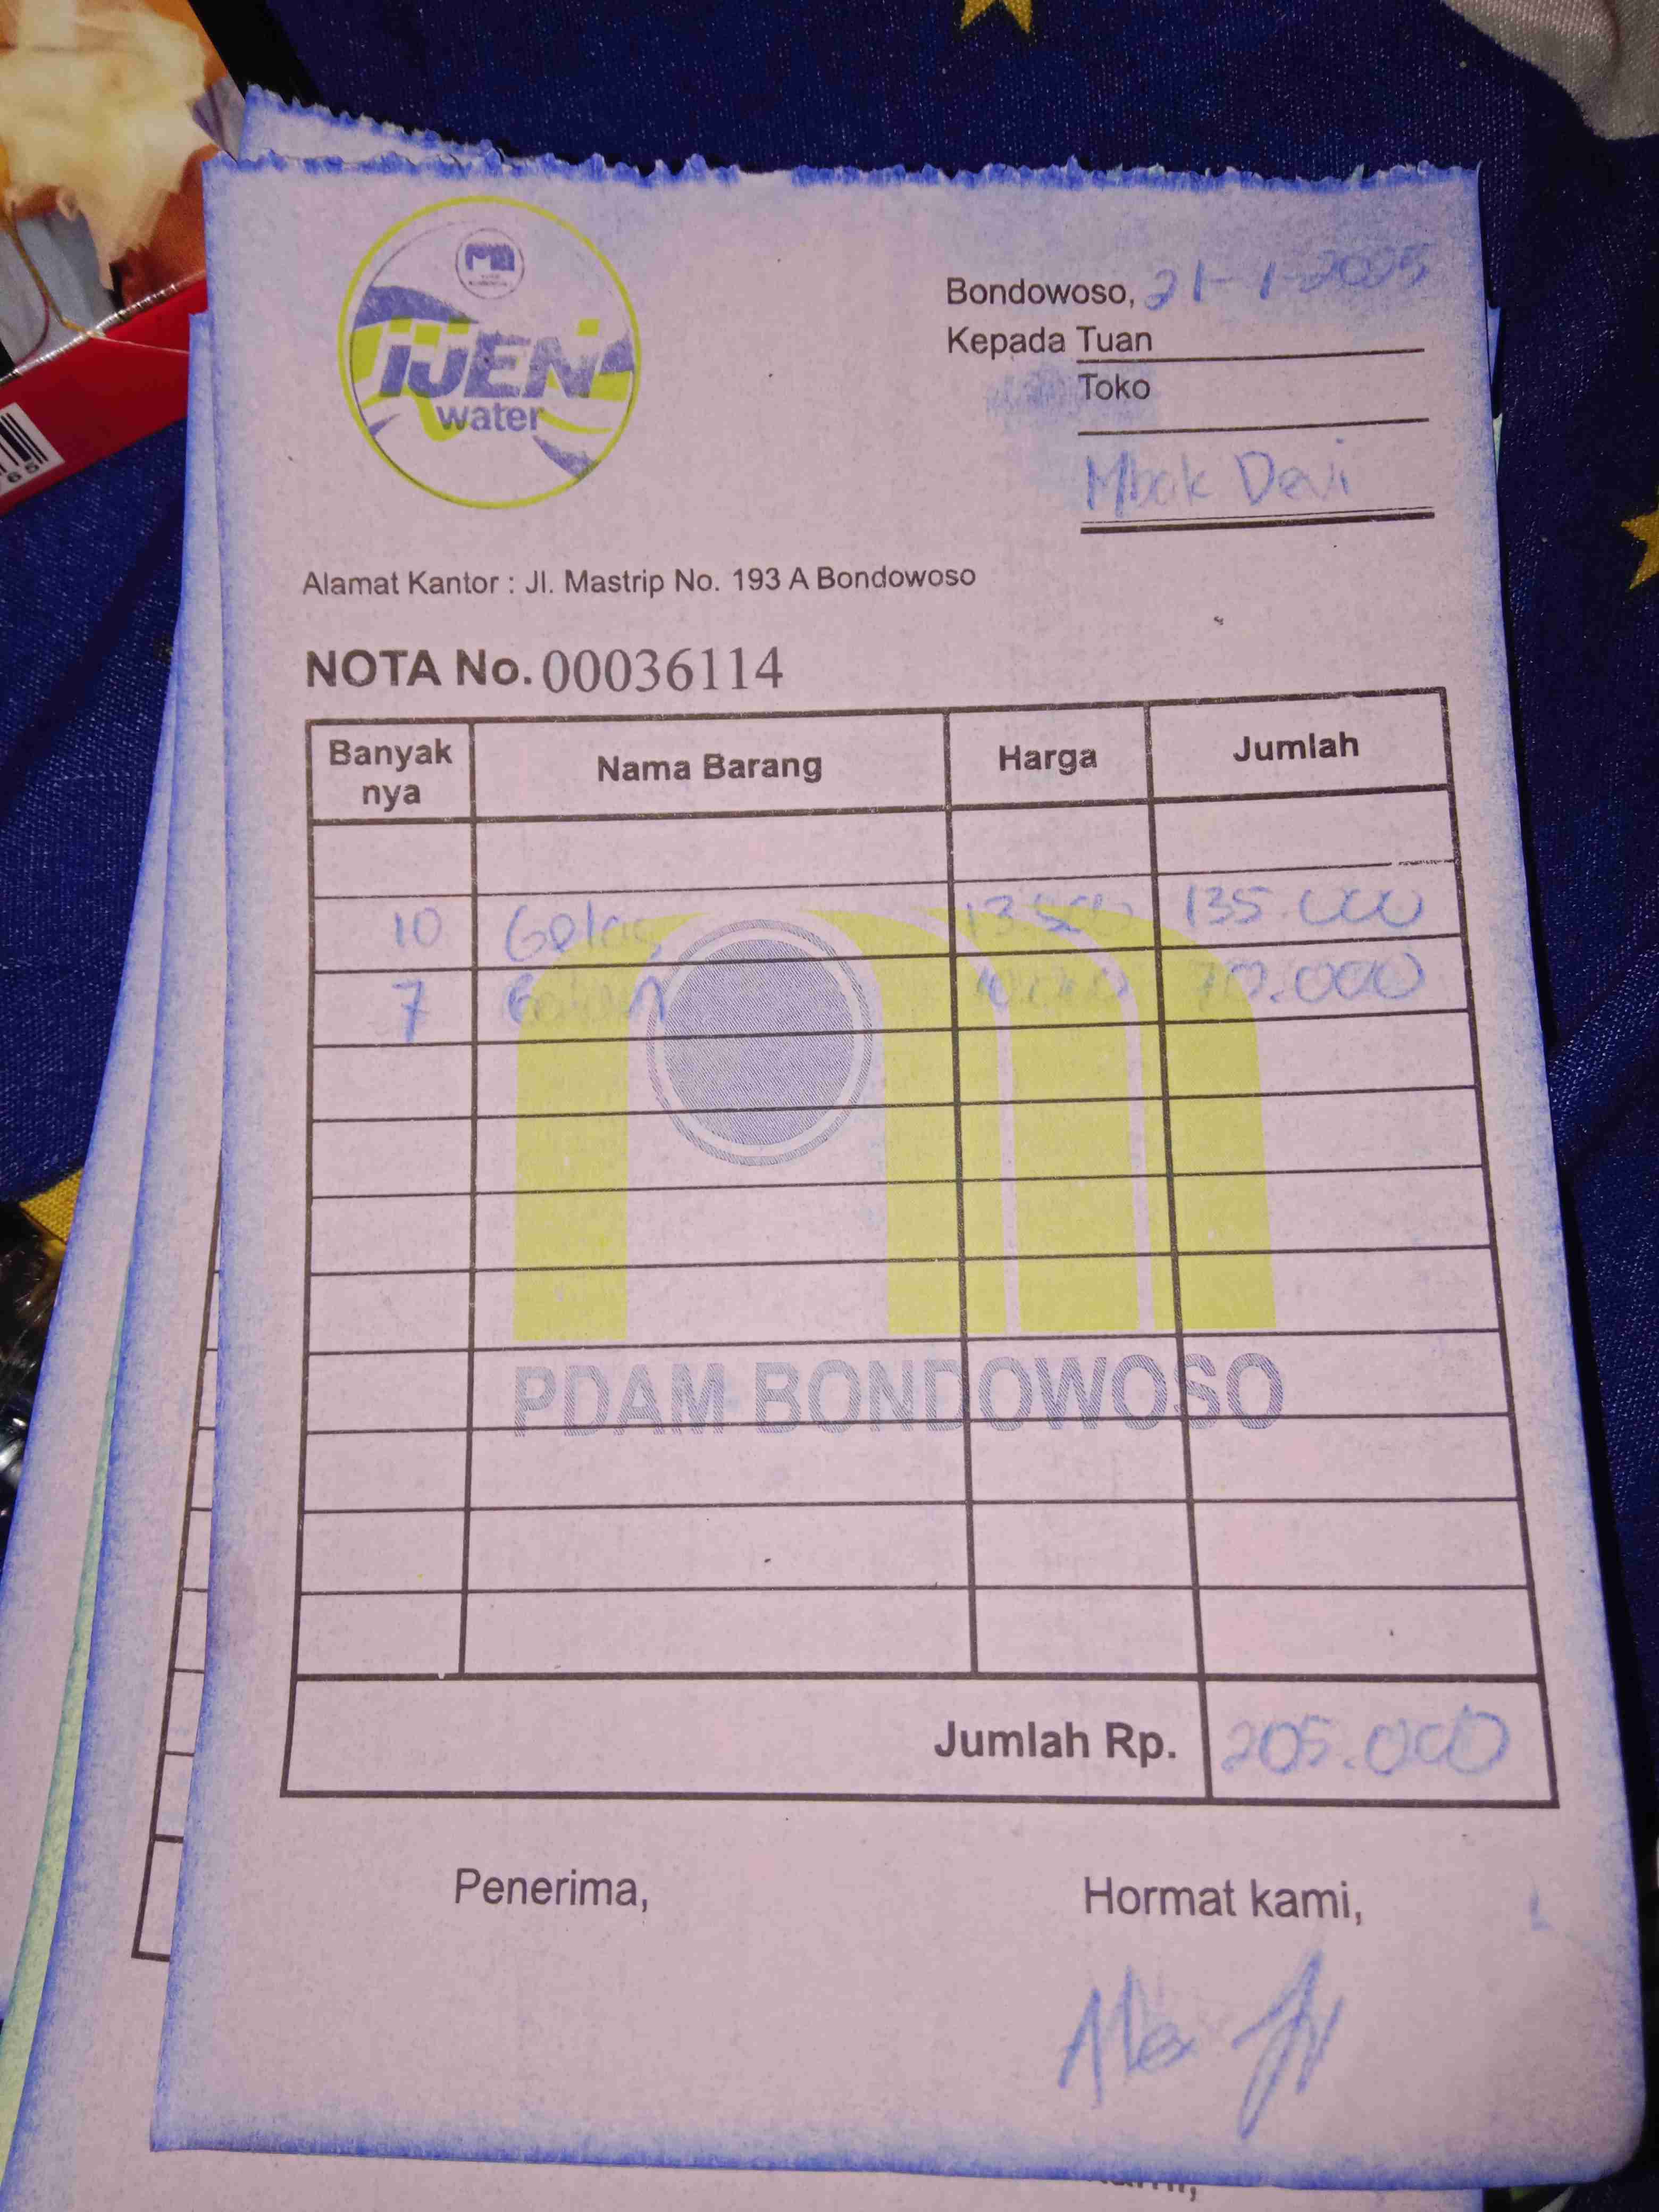 IJEN
water
Bondowoso, 21-1-2025
Kepada Tuan
Toko
Mbak Devi
Alamat Kantor : Jl. Mastrip No. 193 A Bondowoso
NOTA No. 00036114
Banyak nya Nama Barang Harga Jumlah
10 Gelas 13.500 135.000
7 Galon 10.000 70.000
PDAM BONDOWOSO
Jumlah Rp. 205.000
Penerima, Hormat kami,